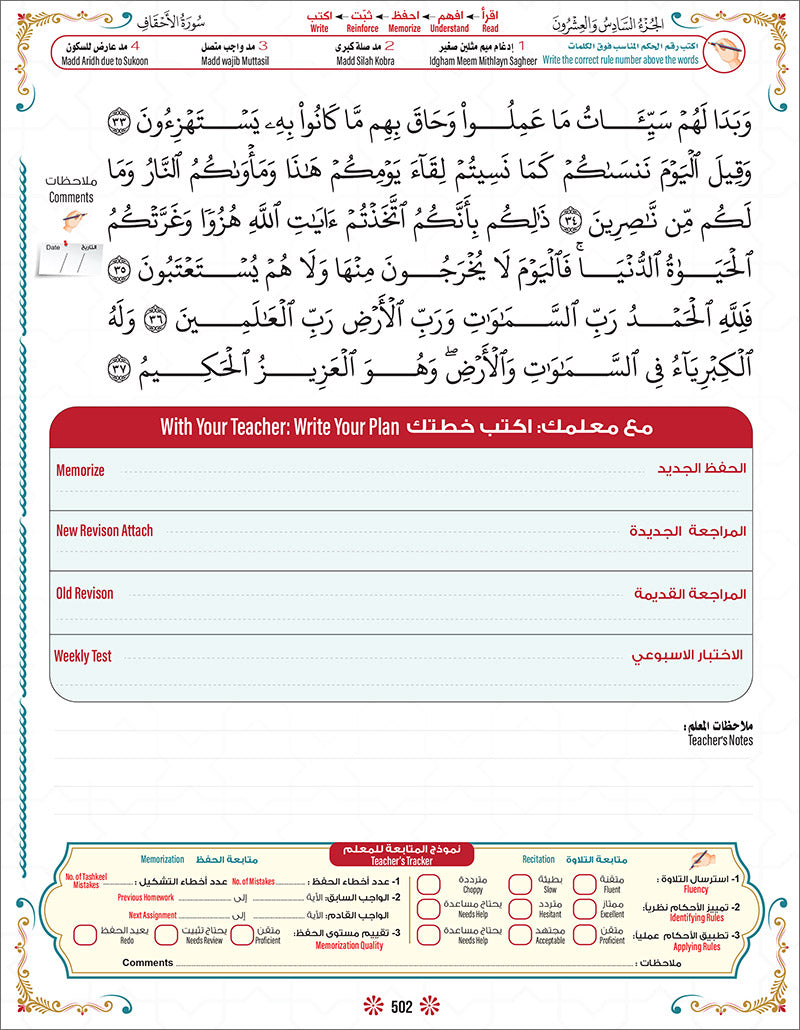 الجزء السادس والعشرون
اقرأ ← افهم ← احفظ ← ثبّت ← اكتب
سورة الأحقاف
Read Understand Memorize Reinforce Write
اكتب رقم الحكم المناسب فوق الكلمات
Write the correct rule number above the words
1 إدغام ميم مثلين صغير
Idgham Meem Mithlayn Sagheer
2 مد صلة كبرى
Madd Silah Kobra
3 مد واجب متصل
Madd wajib Muttasil
4 مد عارض للسكون
Madd Aridh due to Sukoon
وَبَدَا لَهُمْ سَيِّـَٔاتُ مَا عَمِلُوا۟ وَحَاقَ بِهِم مَّا كَانُوا۟ بِهِۦ يَسْتَهْزِءُونَ ٣٣
وَقِيلَ ٱلْيَوْمَ نَنسَىٰكُمْ كَمَا نَسِيتُمْ لِقَآءَ يَوْمِكُمْ هَـٰذَا وَمَأْوَىٰكُمُ ٱلنَّارُ وَمَا
لَكُم مِّن نَّـٰصِرِينَ ٣٤ ذَٰلِكُم بِأَنَّكُمُ ٱتَّخَذْتُمْ ءَايَـٰتِ ٱللَّهِ هُزُوًا وَغَرَّتْكُمُ
ٱلْحَيَوٰةُ ٱلدُّنْيَا ۚ فَٱلْيَوْمَ لَا يُخْرَجُونَ مِنْهَا وَلَا هُمْ يُسْتَعْتَبُونَ ٣٥
فَلِلَّهِ ٱلْحَمْدُ رَبِّ ٱلسَّمَـٰوَٰتِ وَرَبِّ ٱلْأَرْضِ رَبِّ ٱلْعَـٰلَمِينَ ٣٦ وَلَهُ
ٱلْكِبْرِيَآءُ فِى ٱلسَّمَـٰوَٰتِ وَٱلْأَرْضِ ۖ وَهُوَ ٱلْعَزِيزُ ٱلْحَكِيمُ ٣٧
ملاحظات
Comments
التاريخ Date
/ /
مع معلمك: اكتب خطتك With Your Teacher: Write Your Plan
الحفظ الجديد Memorize
المراجعة الجديدة New Revison Attach
المراجعة القديمة Old Revison
الاختبار الاسبوعي Weekly Test
ملاحظات المعلم:
Teacher's Notes
نموذج المتابعة للمعلم
Teacher's Tracker
متابعة التلاوة Recitation
1- استرسال التلاوة :
Fluency
متقنة Fluent
بطيئة Slow
مترددة Choppy
2- تمييز الأحكام نظرياً:
Identifying Rules
ممتاز Excellent
متردد Hesitant
يحتاج مساعدة Needs Help
3- تطبيق الأحكام عملياً:
Applying Rules
متقن Proficient
مجتهد Acceptable
يحتاج مساعدة Needs Help
متابعة الحفظ Memorization
1- عدد أخطاء الحفظ : No. of Mistakes عدد أخطاء التشكيل : No. of Tashkeel Mistakes
2- الواجب السابق: الآية إلى Previous Homework
الواجب القادم: الآية إلى Next Assignment
3- تقييم مستوى الحفظ:
Memorization Quality
متقن Proficient
يحتاج تثبيت Needs Review
يعيد الحفظ Redo
ملاحظات : Comments
502